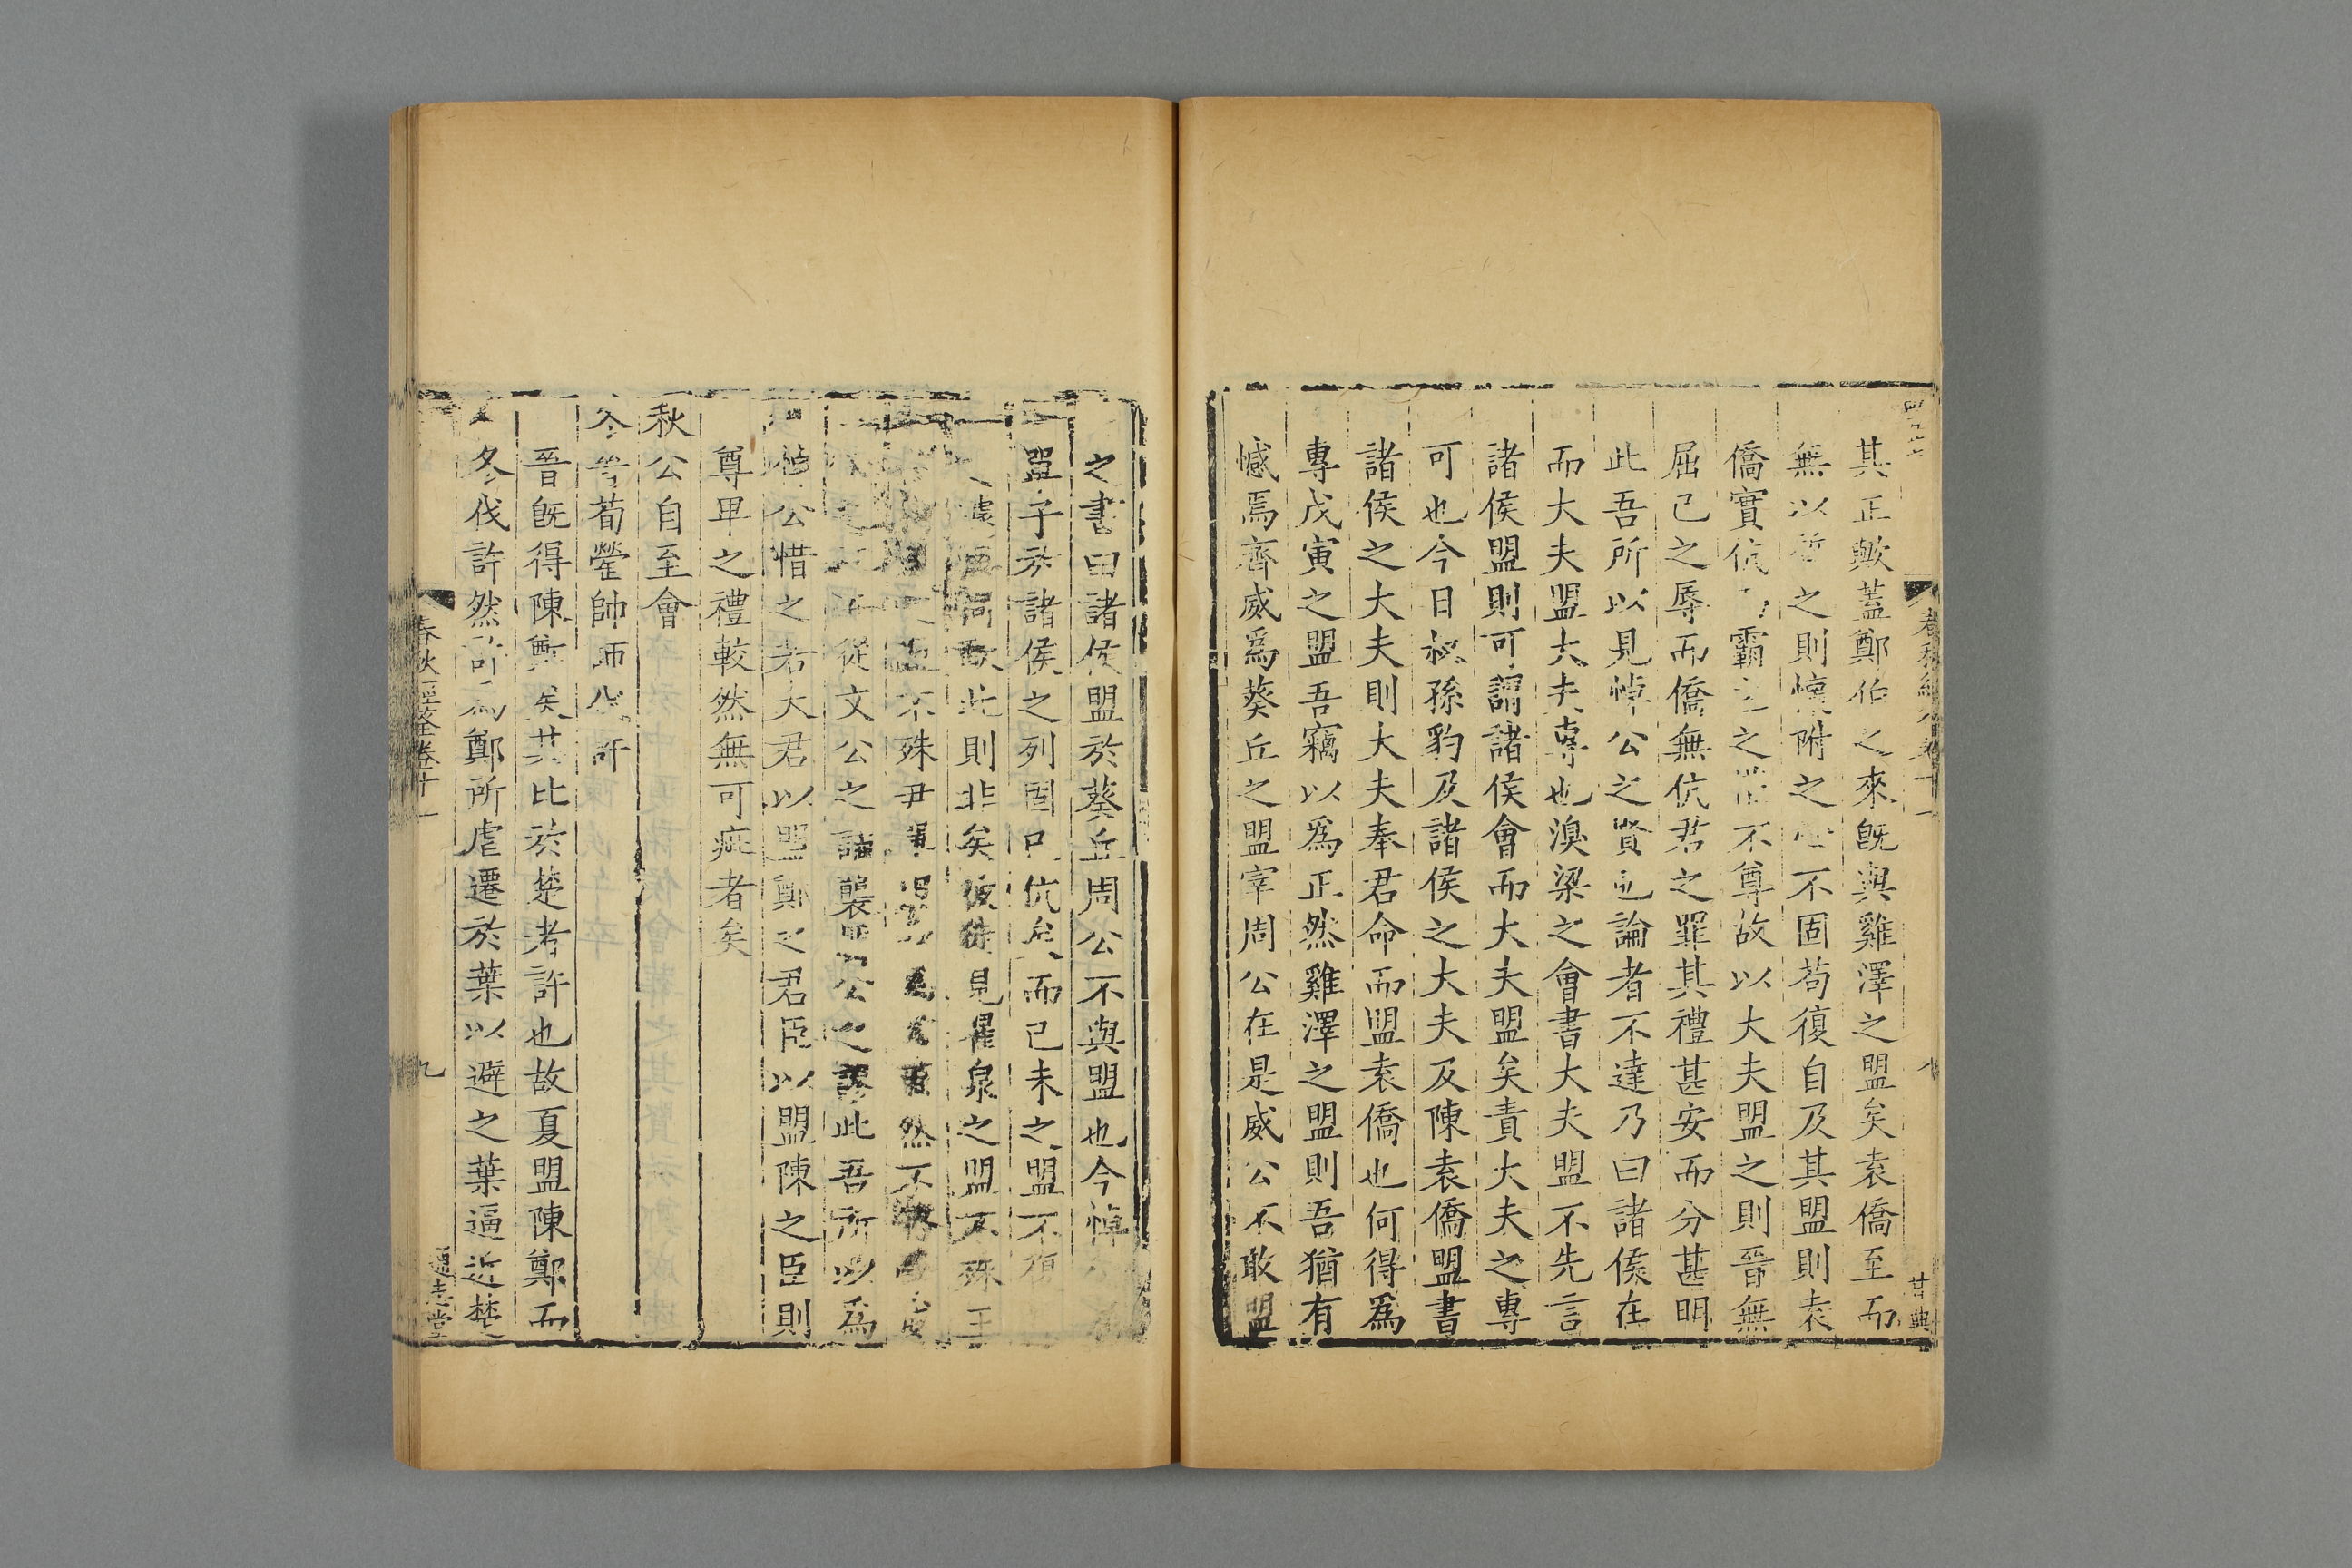 其正歟蓋鄭伯之來既與雞澤之盟矣袁僑至而
無以答之則懷附之心不固苟復自及其盟則袁
僑實伉霸之之罪不尊故以大夫盟之則晉無
屈己之辱而僑無伉君之罪其禮甚安而分甚明
此吾所以見悼公之賢也論者不達乃曰諸侯在
而大夫盟大夫專也溴梁之會書大夫盟不先言
諸侯盟則可謂諸侯會而大夫盟矣責大夫之專
可也今日叔孫豹及諸侯之大夫及陳袁僑盟書
諸侯之大夫則大夫奉君命而盟袁僑也何得爲
專戊寅之盟吾竊以爲正然雞澤之盟則吾猶有
憾焉齊威爲葵丘之盟宰周公在是威公不敢盟
春秋經筌卷十一
八
甘典
之書曰諸侯盟於葵丘周公不與盟也今悼
單子於諸侯之列固已伉矣而已未之盟不復
此則非矣彼徒見翟泉之盟不殊王
盟不殊尹單然不
從文公之譎襲之謬此吾所以爲
悼公惜之若夫君以盟鄭之君臣以盟陳之臣則
尊卑之禮較然無可疵者矣
秋公自至會
冬晉荀罃帥師伐許
晉既得陳鄭矣其比於楚者許也故夏盟陳鄭而
冬伐許然許爲鄭所虐遷於葉以避之葉逼近楚
春秋經筌卷十一
九
通志堂